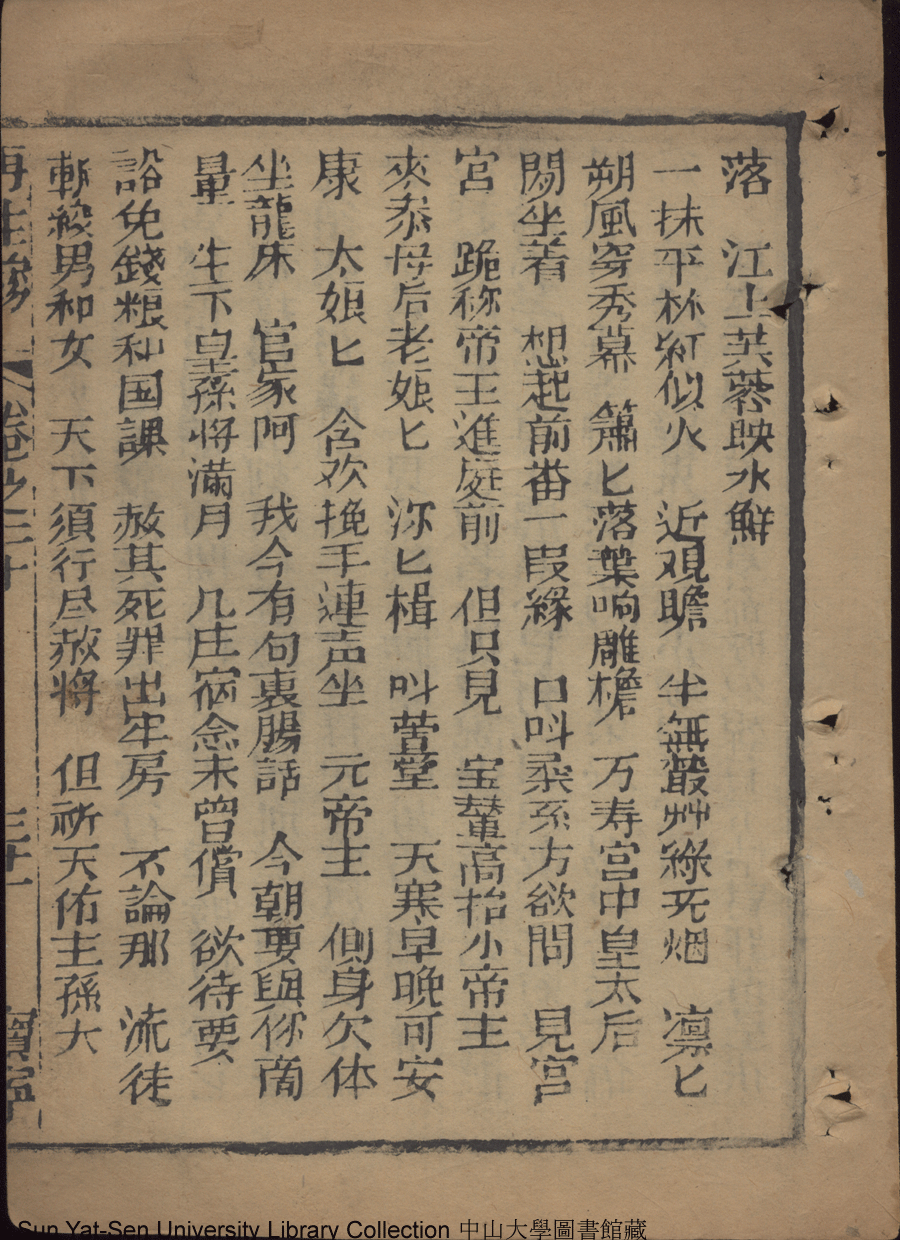 落　江上芙蓉映水鮮
一抹平林紅似火　近观瞻　半無叢艸綠无烟　凛匕
朔風穿秀幕　簫匕落葉响雕檐　万寿宫中皇太后
閑坐着　想起前番一段緣　口叫桑系方欲問　見宫
宫　跪称帝王進庭前　但只見　宝輦高抬小帝主
來叅母后老娘匕　沵匕楫　叫萱堂　天寒早晚可安
康　太娘匕　含欢挽手連声坐　元帝主　側身欠体
坐龍床　官家阿　我今有句裏腸話　今朝要與你啇
量　生下皇孫将满月　几庄宿念未曾償　欲待要
谿免錢粮和国課　赦其死罪出牢房　不論那　流徒
斬絞男和女　天下須行尽赦将　但祈天佑主孫大
再生缘　卷之三十　三十一